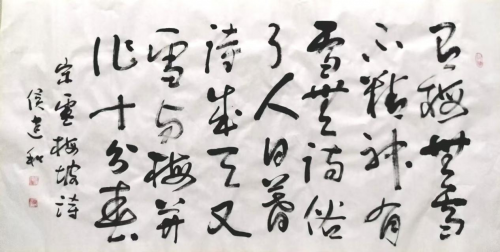 有梅無雪
不精神有
雪無詩俗
了人日暮
詩成天又
雪与梅并
作十分春
宋盧梅坡詩
侯建和